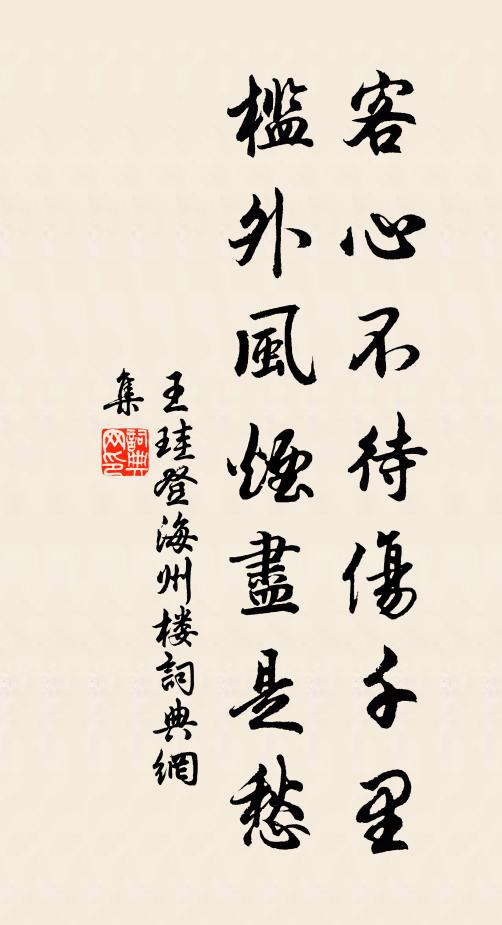 客心不待傷千里
檻外風煙盡是愁
王珪登海州楼詞典網
集
詞典网印